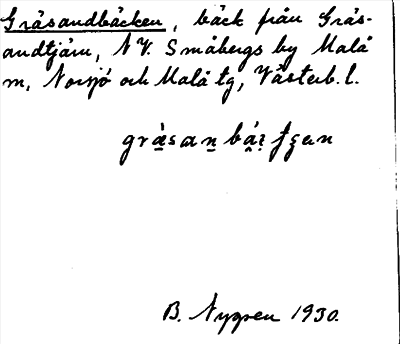 Gräsandbäcken, bäck från Gräs-
andtjärn, N V. Småbergs by Malå
m, Norsjö och Malå tg, Västerb. l.
B. Nygren 1930.